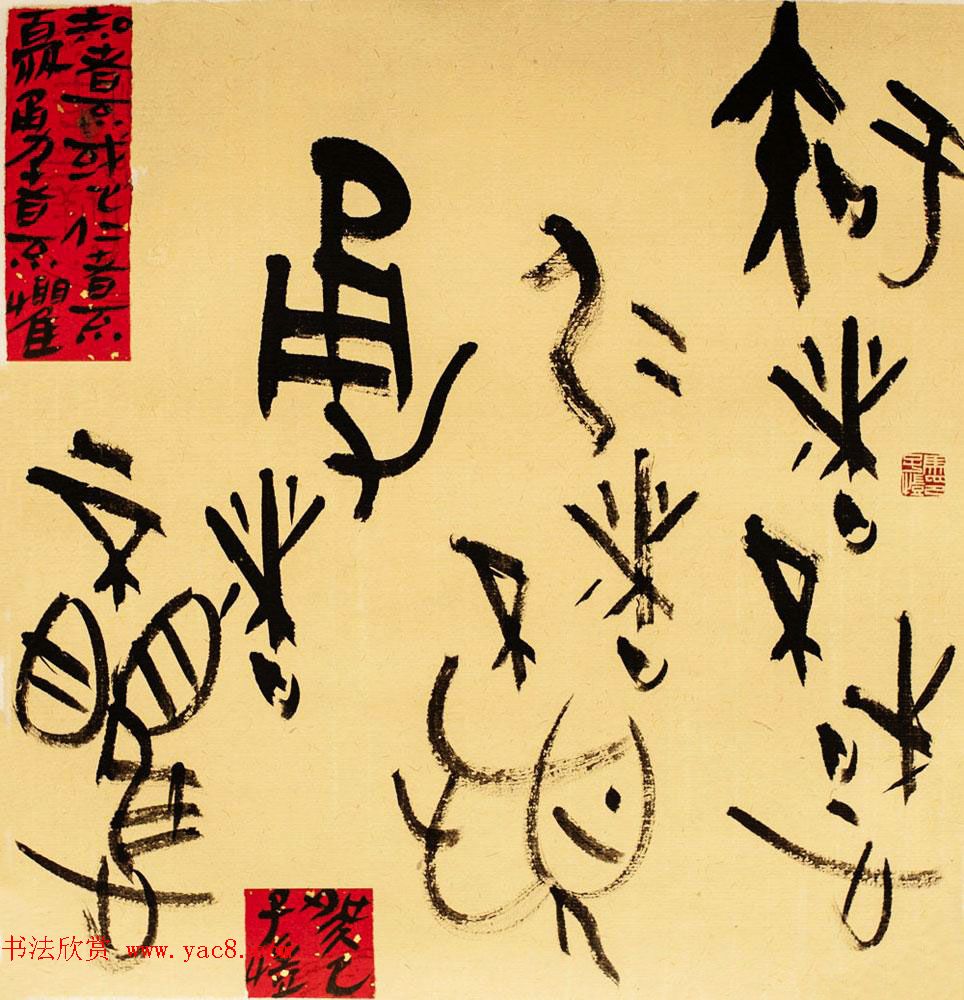 知者不惑
仁者不憂
勇者不懼
知者不惑仁者不
憂勇者不懼
癸巳
子愷
书法欣赏 www.yac8.com